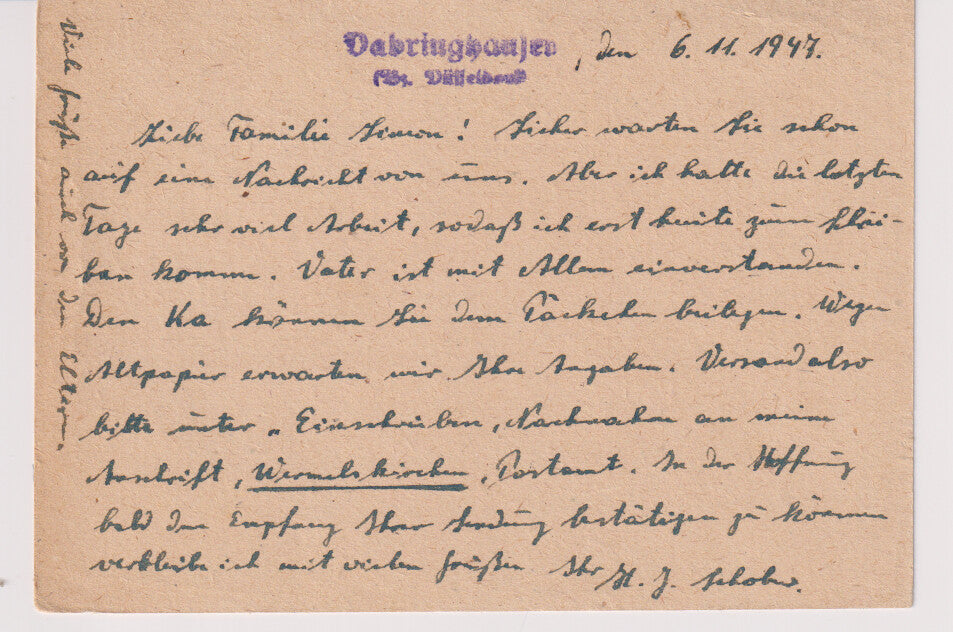 Dabringhausen, den 6.11.1947.
(Bz. Düsseldorf)
Liebe Familie Simon! Sicher warten Sie schon
auf eine Nachricht von uns. Aber ich hatte die letzten
Tage sehr viel Arbeit, sodaß ich erst heute zum Schrei-
ben komme. Vater ist mit Allem einverstanden.
Den Ka können Sie dem Päckchen beilegen. Wegen
Altpapier erwarten wir Ihre Angaben. Versand also
bitte unter „Einschreiben, Nachnahme an meine
Anschrift, Wermelskirchen, Postamt. In der Hoffnung
bald den Empfang Ihrer Sendung bestätigen zu können
verbleibe ich mit vielen Grüßen Ihr H. J. Schober.
Viele Grüße auch von den Eltern.